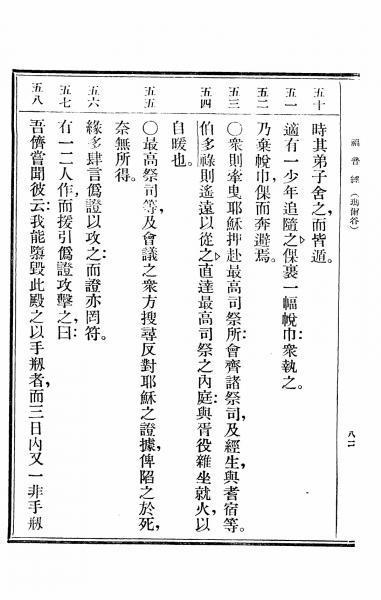 福音經（瑪爾谷）
八二
五十
時其弟子舍之，而皆遁。
五一
適有一少年追隨之，倮裹一幅帨巾：衆執之。
五二
乃棄帨巾，倮而奔避焉。
五三
〇衆則牽曳耶穌押赴最高司祭所：會齊諸祭司及經生與耆宿等。
五四
伯多祿則遙遠以從之，直達最高司祭之內庭：與胥役雜坐就火，以
自暖也。
五五
〇最高祭司等，及會議之衆方搜尋反對耶穌之證據，俾陷之於死，
奈無所得。
五六
緣多肆言僞證以攻之：而證亦罔符。
五七
有一二人作，而援引僞證攻擊之，曰：
五八
吾儕嘗聞彼云：我能隳毀此殿之以手剏者，而三日內又一非手剏